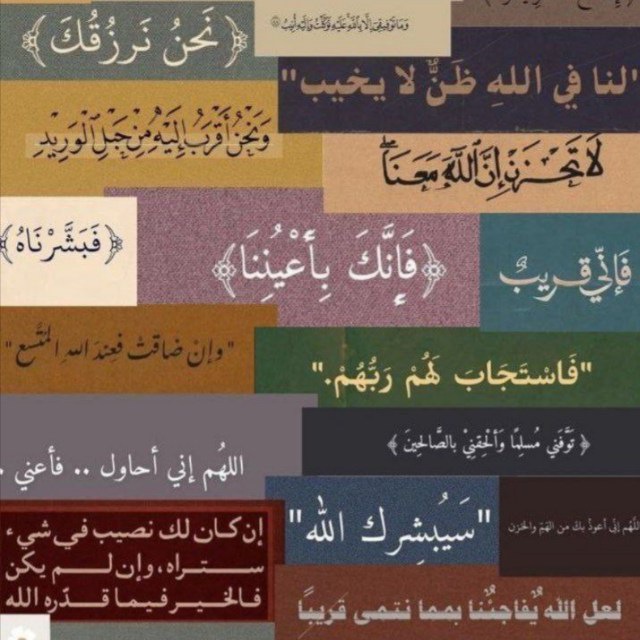 ﴿ نَحنُ نَرزُقُكَ ﴾
وَمَا تَوْفِيقِي إِلَّا بِاللَّهِ عَلَيْهِ تَوَكَّلْتُ وَإِلَيْهِ أُنِيبُ
"لنا في اللهِ ظَنٌّ لا يخيب"
وَنَحْنُ أَقْرَبُ إِلَيْهِ مِنْ حَبْلِ الْوَرِيدِ
لَا تَحْزَنْ إِنَّ اللَّهَ مَعَنَا
﴿ فَبَشَّرْنَاهُ ﴾
﴿ فَإِنَّكَ بِأَعْيُنِنَا ﴾
فَإِنِّي قَرِيبٌ
"وإنْ ضاقتْ فعِندَ اللهِ المتَّسع"
"فَاسْتَجَابَ لَهُمْ رَبُّهُمْ."
﴿ تَوَفَّني مُسلِمًا وَأَلْحِقنِيْ بالصَّالحِينَ ﴾
اللهُم إني أحاول .. فأعني .
"سَيُبشِرك الله"
اللَّهُم إنّي أعوذُ بكَ من الهَمّ والحَزن
إن كان لك نصيب في شيء
ستراه، وإن لم يكن
فالخير فيما قدّره الله
لعل اللهَ يُفاجِئُنا بمما نتمى قريبًا